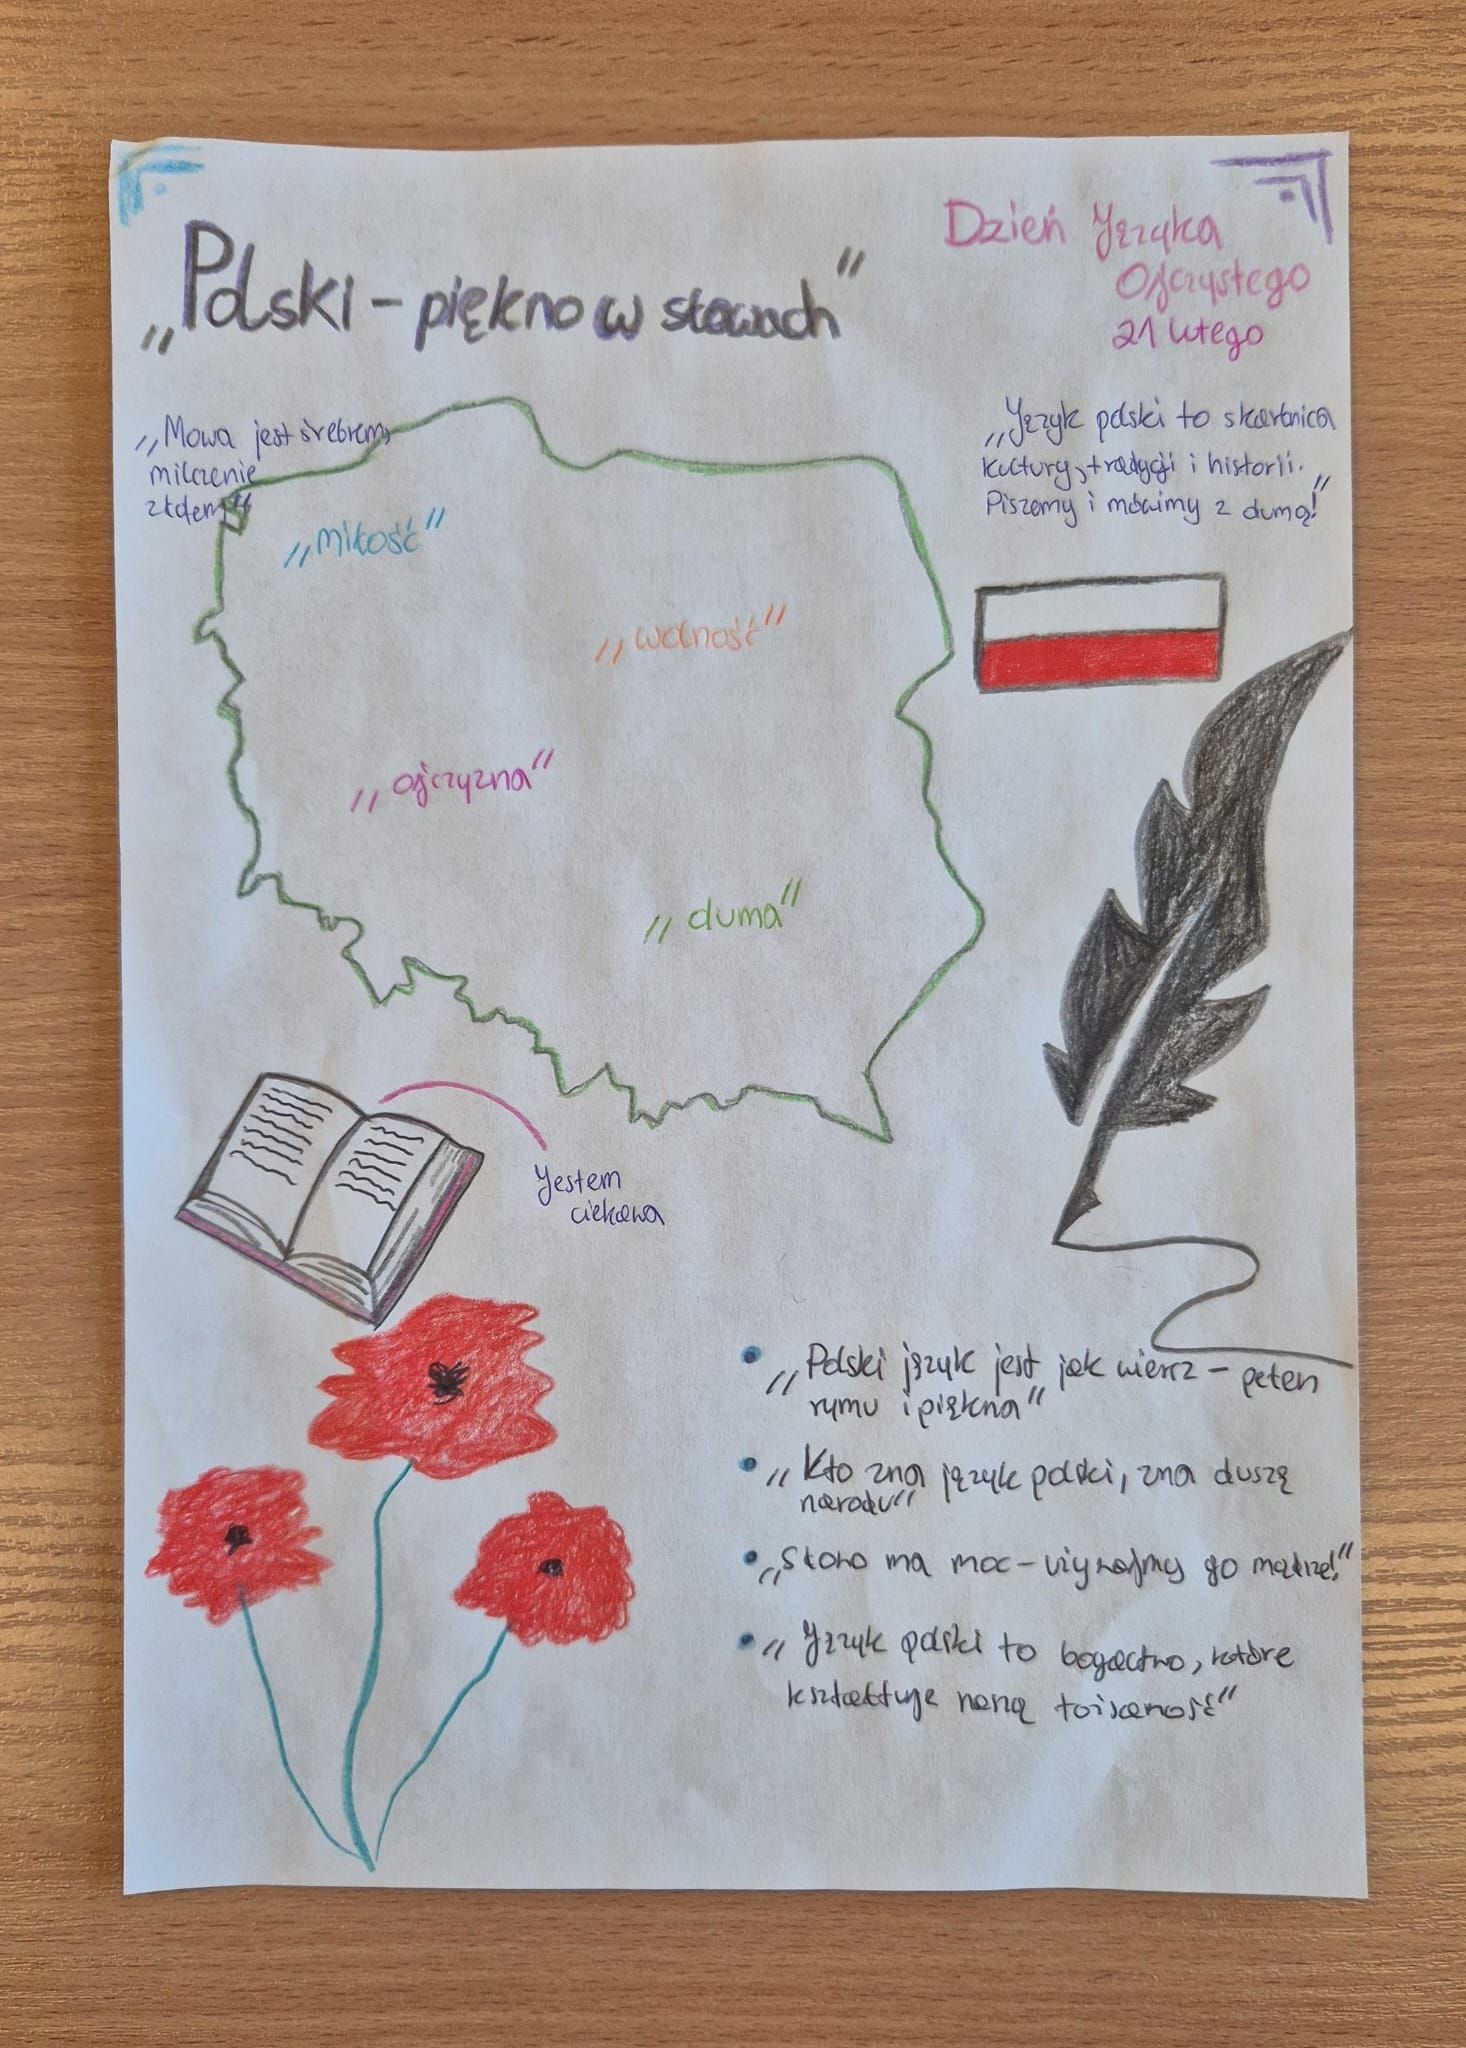 „Polski – piękno w słowach”
Dzień Języka
Ojczystego
21 lutego
„Mowa jest srebrem,
milczenie
złotem”
„Język polski to skarbnica
kultury, tradycji i historii.
Piszemy i mówimy z dumą!”
„miłość”
„wolność”
„ojczyzna”
„duma”
Jestem
ciekawa
„Polski język jest jak wiersz – pełen
rymu i piękna”
„Kto zna język polski, zna duszę
narodu”
„Słowo ma moc – używajmy go mądrze!”
„Język polski to bogactwo, które
kształtuje naszą tożsamość”